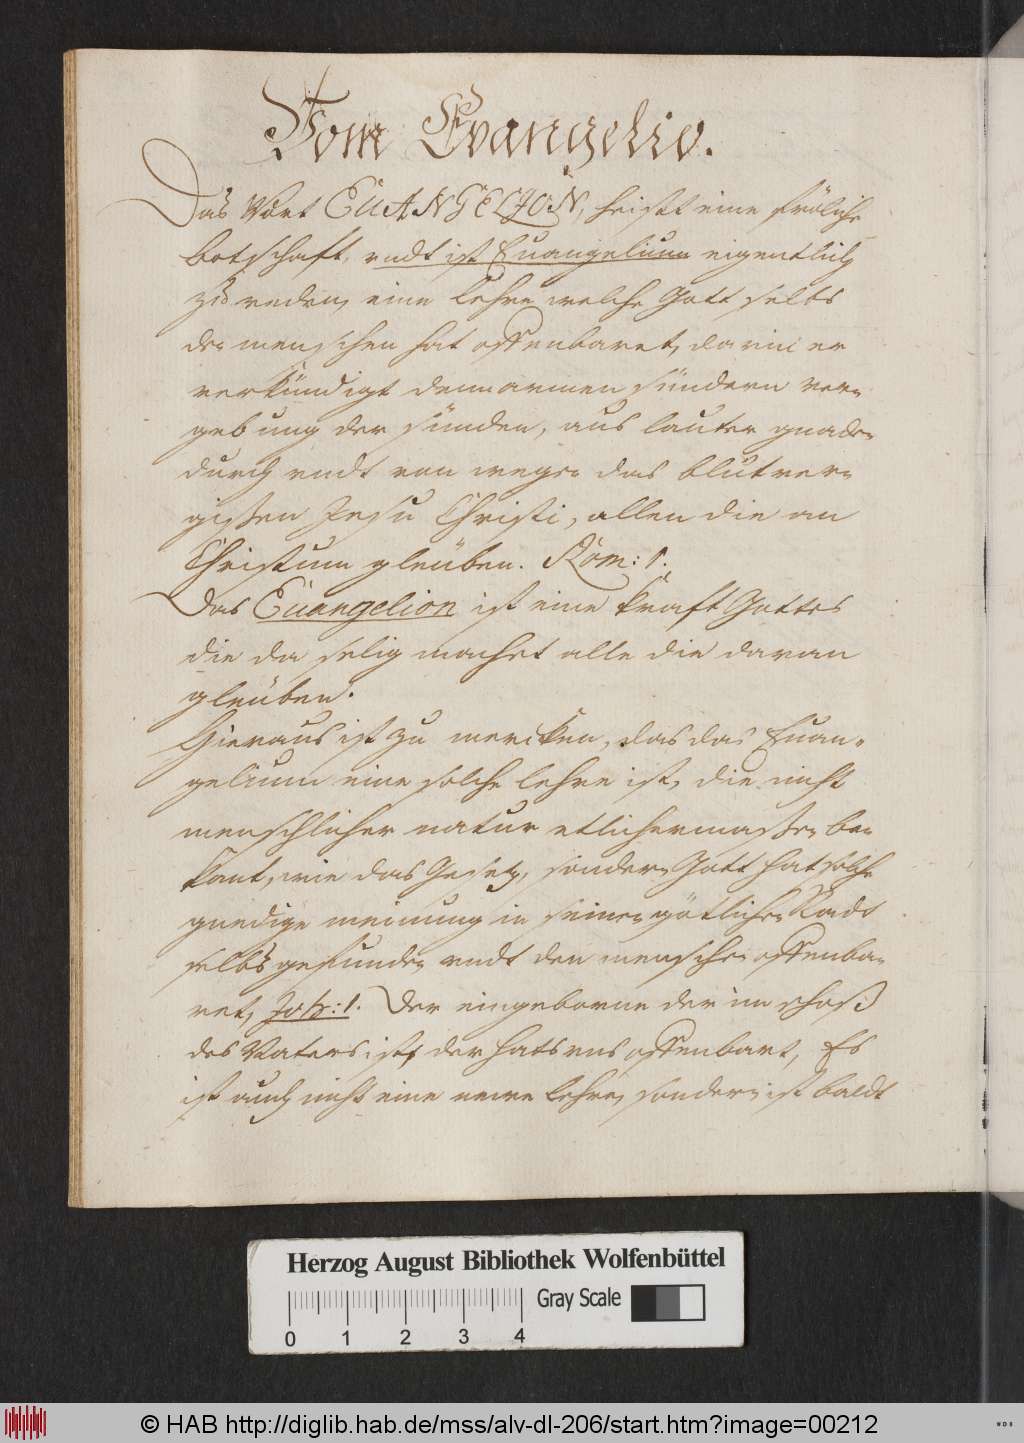 Vom Evangelio.
Das Wort EUANGELION, heist eine fröliche
botschafft, undt ist Euangelium eigentlich
zu reden, eine Lehre welche Gott selbs
den menschen hat offenbaret, darin er
verkündigt den armen sündern ver-
gebung der sünden, aus lauter gnaden
durch undt von wegen das blutver-
gißen Jesu Christi, allen die an
Christum gleüben. Röm: 1.
Das Euangelion ist eine krafft Gottes
die da selig machet alle die daran
gleüben.
Hieraus ist zu mercken, das das Euan-
gelium eine solche lehre ist, die nicht
menschlicher natur etlichermaßen be-
kant, wie das Gesetz, sondern Gott hat solche
gnedige meinung in seinen götlichen Radt
selbs gefunden undt den menschen offenba-
ret, Joh: 1. Der eingeborne der im schoß
des Vaters ist, der hats uns offenbart, Es
ist auch nicht eine neue Lehre, sondern ist baldt
Herzog August Bibliothek Wolfenbüttel
0 1 2 3 4
Gray Scale
© HAB http://diglib.hab.de/mss/alv-dl-206/start.htm?image=00212
WDB